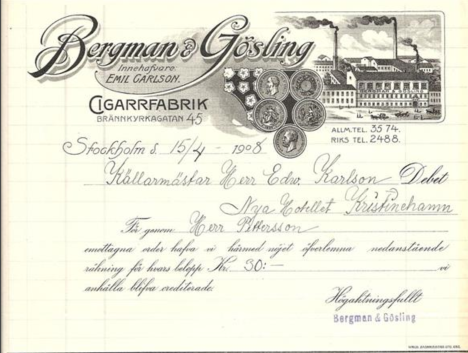 Bergman & Gösling
Innehafvare
EMIL CARLSON.
CIGARRFABRIK
BRÄNNKYRKAGATAN 45
ALLM. TEL. 35 74.
RIKS TEL. 24 88.
Stockholm d. 15/4 - 1908
Källarmästar Herr Edw. Karlson Debet
Nya Hotellet Kristinehamn
På genom Herr Pettersson
emottagna order hafva vi härmed nöjet öfverlemna nedanstående
räkning för hvars belopp Kr. 30:- vi
anhålla blifva crediterade.
Högaktningsfullt
Bergman & Gösling